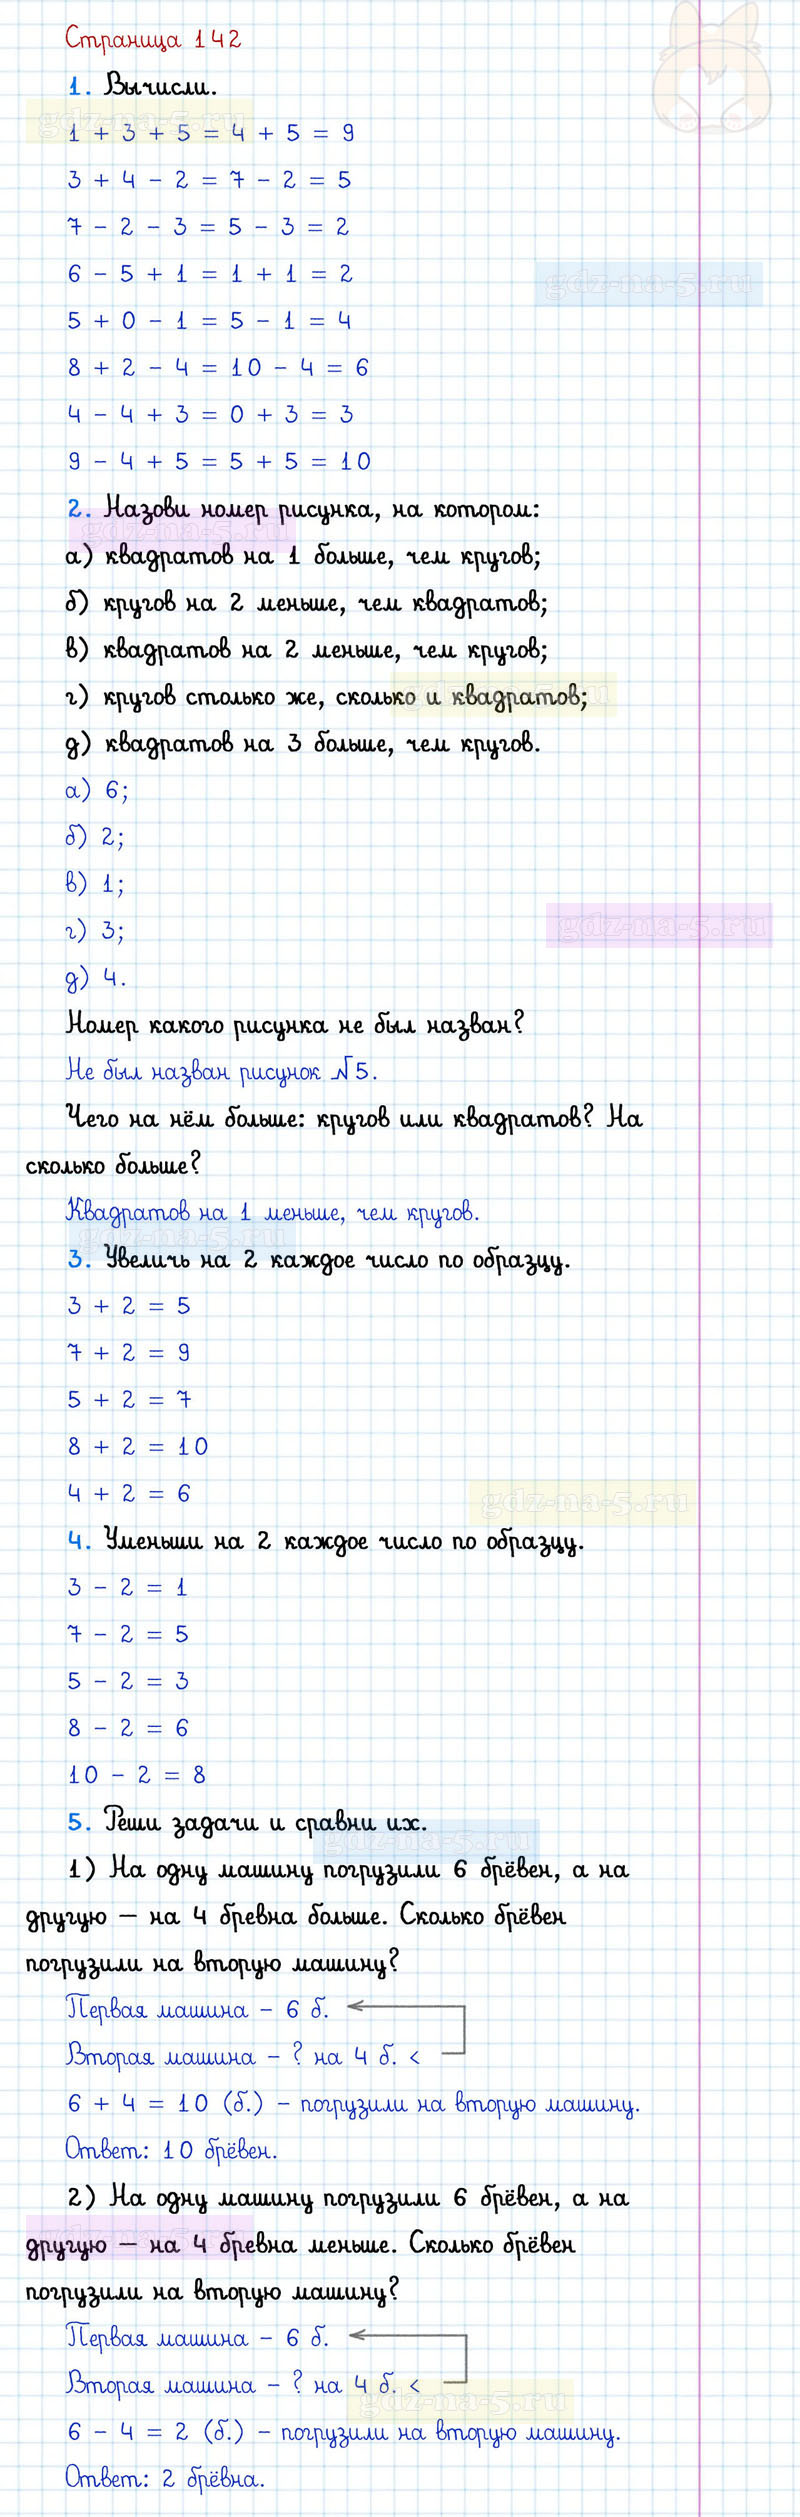 Страница 142
1. Вычисли.
gdz-na-5.ru
1 + 3 + 5 = 4 + 5 = 9
3 + 4 - 2 = 7 - 2 = 5
7 - 2 - 3 = 5 - 3 = 2
6 - 5 + 1 = 1 + 1 = 2
gdz-na-5.ru
5 + 0 - 1 = 5 - 1 = 4
8 + 2 - 4 = 10 - 4 = 6
4 - 4 + 3 = 0 + 3 = 3
9 - 4 + 5 = 5 + 5 = 10
2. Назови номер рисунка, на котором:
gdz-na-5.ru
а) квадратов на 1 больше, чем кругов;
б) кругов на 2 меньше, чем квадратов;
в) квадратов на 2 меньше, чем кругов;
г) кругов столько же, сколько и квадратов;
gdz-na-5.ru
д) квадратов на 3 больше, чем кругов.
а) 6;
б) 2;
в) 1;
г) 3;
gdz-na-5.ru
д) 4.
Номер какого рисунка не был назван?
Не был назван рисунок №5.
Чего на нём больше: кругов или квадратов? На
сколько больше?
Квадратов на 1 меньше, чем кругов.
gdz-na-5.ru
3. Увеличь на 2 каждое число по образцу.
3 + 2 = 5
7 + 2 = 9
5 + 2 = 7
8 + 2 = 10
4 + 2 = 6
gdz-na-5.ru
4. Уменьши на 2 каждое число по образцу.
3 - 2 = 1
7 - 2 = 5
5 - 2 = 3
8 - 2 = 6
10 - 2 = 8
5. Реши задачи и сравни их.
gdz-na-5.ru
1) На одну машину погрузили 6 брёвен, а на
другую — на 4 бревна больше. Сколько брёвен
погрузили на вторую машину?
Первая машина - 6 б.
Вторая машина - ? на 4 б. <
6 + 4 = 10 (б.) - погрузили на вторую машину.
Ответ: 10 брёвен.
2) На одну машину погрузили 6 брёвен, а на
gdz-na-5.ru
другую — на 4 бревна меньше. Сколько брёвен
погрузили на вторую машину?
Первая машина - 6 б.
Вторая машина - ? на 4 б. <
gdz-na-5.ru
6 - 4 = 2 (б.) - погрузили на вторую машину.
Ответ: 2 брёвна.